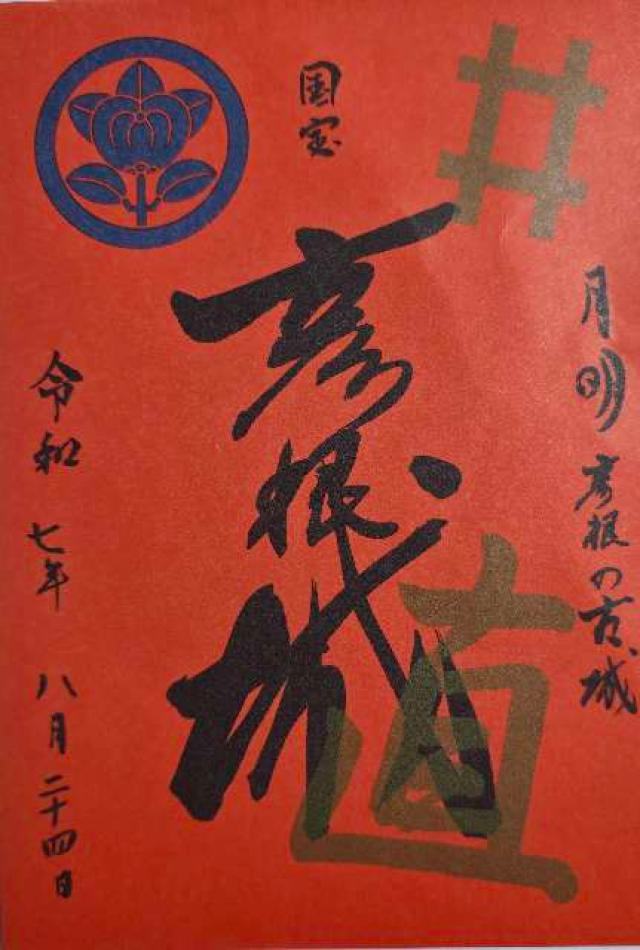 井
月明彦根の古城
国宝
彦根城
直
令和七年八月二十四日